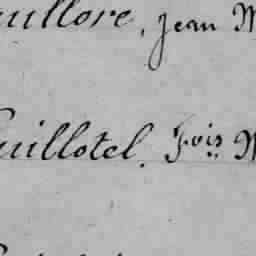 uillore, Jean M
uillotel, F.ois M